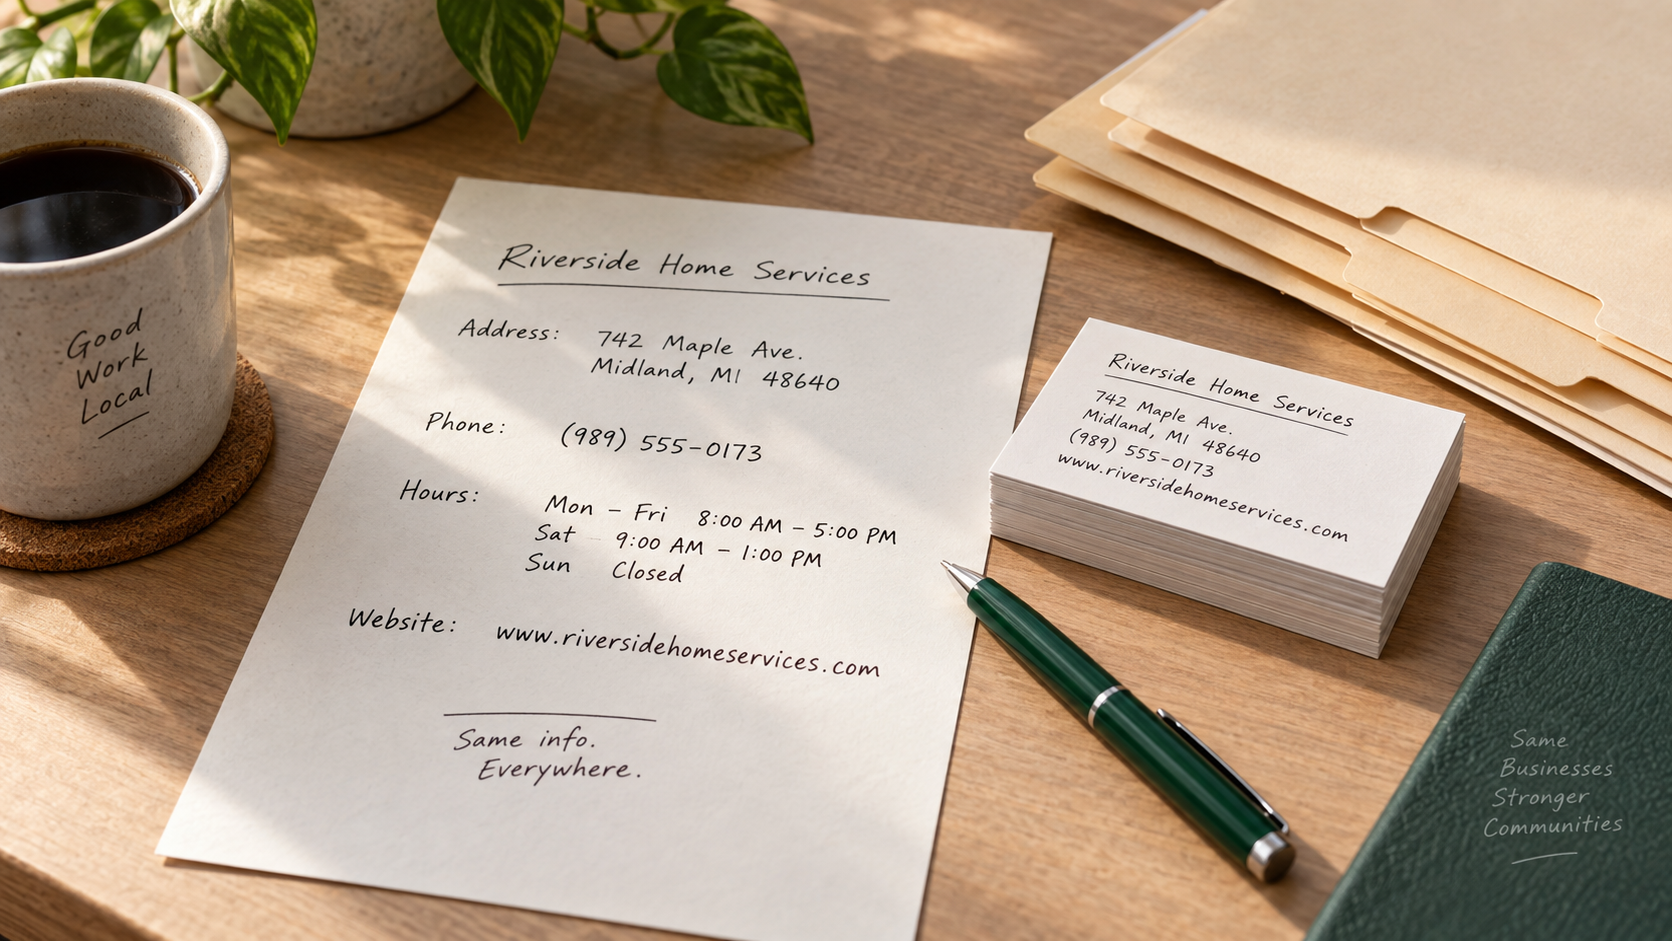 Good
Work
Local
Riverside Home Services
Address: 742 Maple Ave.
Midland, MI 48640
Phone: (989) 555-0173
Hours: Mon – Fri 8:00 AM – 5:00 PM
Sat 9:00 AM – 1:00 PM
Sun Closed
Website: www.riversidehomeservices.com
Same info.
Everywhere.
Riverside Home Services
742 Maple Ave.
Midland, MI 48640
(989) 555-0173
www.riversidehomeservices.com
Same
Businesses
Stronger
Communities